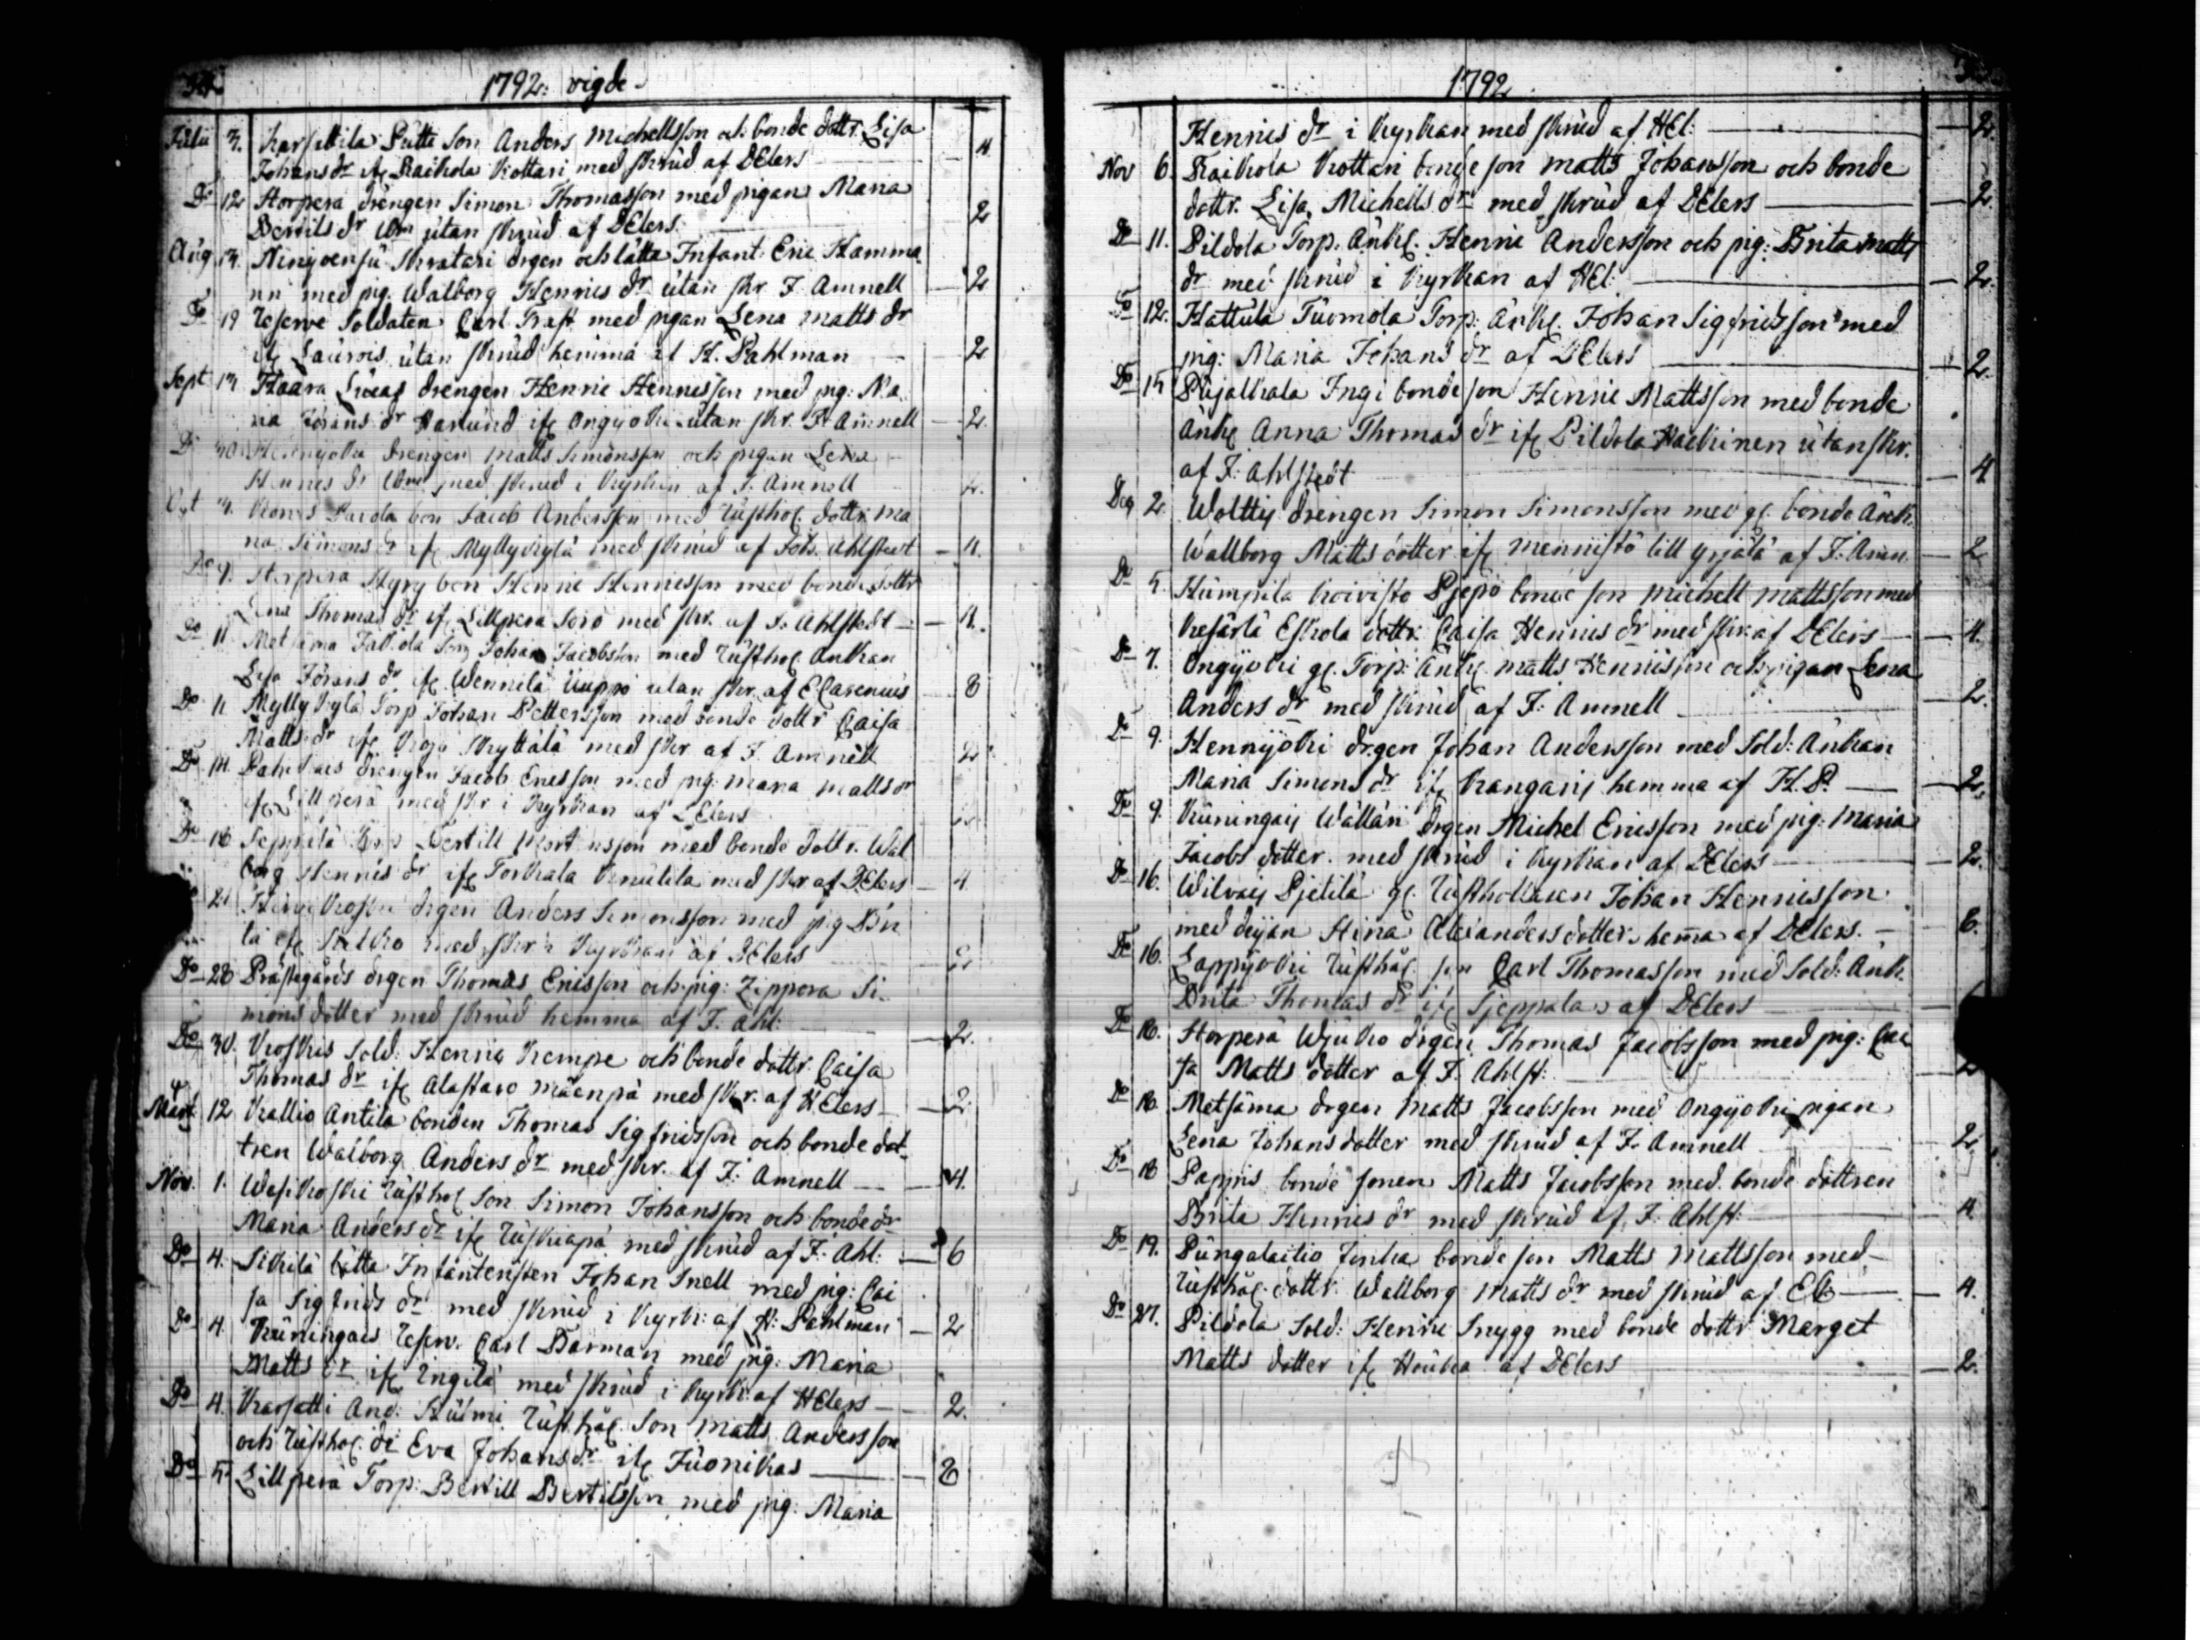 1792: vigde
Julii 3. Karsattila Putta Son Anders Michellsson och bonde dottr. Lisa
Johansdr ifr Raikola Kottari med skrud af DElers 4
Do 12 Storpera drengen Simon Thomasson med pigan Maria
Bertils dr utan skrud af DElers 2
Aug Skratari drgen och lätta Infant. Eric Hamma
nn med pig. Walborg Henrics dr utan skr. F. Amnell 2
Do 19 Reserve Soldaten Carl Traft med pigan Lena Matts dr
ifr Laurois utan skrud hemma af H. Pahlman 2
Sept Haara Lucas drengen Henric Henricsson med pig: Ma
ria dr ifr Ongijoki utan skr. F. Amnell 2
Do 30 drengen Matts Simonsson och pigan Lena
Henrics dr med skrud i Kyrkan af F. Amnell
Oct bon Jacob Andersson med Rusthol. dottr. Ma
ria Simons dr ifr Myllykylä med skrud af Joh. Ahlstedt 4
Do 9. Storpera Kyry bon Henric Henricsson med bonde dottr
Lena Thomas dr ifr Lillpera Soro med skr. af F. Ahlstedt 4
Do 11. Metsäma Torp Johan Jacobsson med Rusthol. Ankan
Lisa Jörans dr ifr Wennilä Uuppo utan skr. af E Carenius 8
Do 11 Myllykylä Torp Johan Pettersson med bonde dottr Caisa
Matts dr ifr Skyttälä med skr af F. Amnell 2
Do 14. drengen Jacob Ericsson med pig: Maria Matts dr
ifr Lillperä med skr i Kyrkan af DElers
Do 18 Seppälä Torp Bertill Mortensson med bonde dottr. Wal
borg Henrics dr ifr Torkala med skr af DElers 4
21 drgen Anders Simonsson med pig Bri
ta ifr med skr i Kyrkan af DElers 2
Do 28 Prästgårds drgen Thomas Ericsson och pig: Zippora Si-
mons dotter med skrud hemma af F. Ahl: 2
Do 30. Koskis Sold. Henric Kempe och bonde dottr. Caisa
Thomas dr ifr Alastaro Mäenpä med skr. af HElers 2
12 Kallio Antila bonden Thomas Sigfridsson och bonde dot-
tren Walborg Anders dr med skr. af F: Amnell 4.
Nov. 1. Wasikoski Rusthol Son Simon Johansson och bonde dr
Maria Anders dr ifr med skrud af F: Ahl: 6
Do 4. Sikilä lätta Infanteristen Johan Snell med pig: Cai
sa Sigfrids dr med skrud i Kyrk: af H: Pahlman 2
Do 4 Kuningais Reserv. Carl Barman med pig: Maria
Matts dr ifr Ingilä med skrud i Kyrk: af HElers 2.
Do 4. Karsatti And. Rusthål. Son Matts Andersson
och Rusthol. dr Eva Johans dr ifr Juonikas 8
Do 5 Lillpera Torp: Bertill Bertilsson med pig: Maria
1792
Henrics dr i Kyrkan med skrud af HEl: 2.
Nov 6. Raikola Kottari bonde son Matts Johansson och bonde
dottr. Lisa Michells dr med skrud af DElers 2.
Do 11. Pildola Torp. Änkl. Henric Andersson och pig: Brita Matts
dr med skrud i Kyrkan af HEl: 2.
Do 12. Hattula Tuomola Torp: Änkl. Johan Sigfridsson med
pig: Maria Johans dr af DElers 2.
Do 15 Pujalkala Ingi bonde son Henric Mattsson med bonde
Änkl Anna Thomas dr ifr Pildola Haikinen utan skr.
af F: Ahlstedt 4
Dec 2. Walttis drengen Simon Simonsson med gl. bonde Änk.
Wallborg Matts dotter ifr Mennistö till Yrjälä af F: Amn. 2
Do 5. Humpila Koivisto Pjepo bonde son Michell Mattsson med
Kesärlä Eskola dottr: Caisa Henrics dr med skr af DElers 4.
Do 7. Ongijoki gl. Torp: Änkl. Matts Henricsson och pigan Lena
Anders dr med skrud af F: Amnell 2.
Do 9. Hennijoki drgen Johan Andersson med Sold: Änkan
Maria Simons dr ifr Kangaris hemma af H.P. 2.
Do 9. Kuningais Wallari drgen Michel Ericsson med pig: Maria
Jacobs dotter. med skrud i Kyrkan af DElers 2.
Do 16. Wilvais Pjetilä gl. Rusthollaren Johan Henricsson
med dejan Stina Alexanders dotter. hemma af DElers. 6.
Do 16. Lappijoki Rusthål. son Carl Thomasson med Sold: Änk.
Brita Thomas dr ifr Sjeppala af DElers
Do 18. Storperä Wjuko drgen Thomas Jacobsson med pig: Cai
sa Matts dotter af F. Ahlst:
Do 18 Metsäma drgen Matts Jacobsson med Ongijoki pigan
Lena Johans dotter med skrud af F. Amnell 2.
Do 18 Pappis bonde sonen Matts Jacobsson med bonde dottren
Brita Henrics dr med skrud af F: Ahlst: 4
Do 19. Pungalaitio Junka bonde son Matts Mattsson med
Rusthål. dottr. Wallborg Matts dr med skrud af 4.
Do 27. Pildola Sold: Henric Snygg med bonde dottr Marget
Matts dotter ifr Houka af DElers 2.